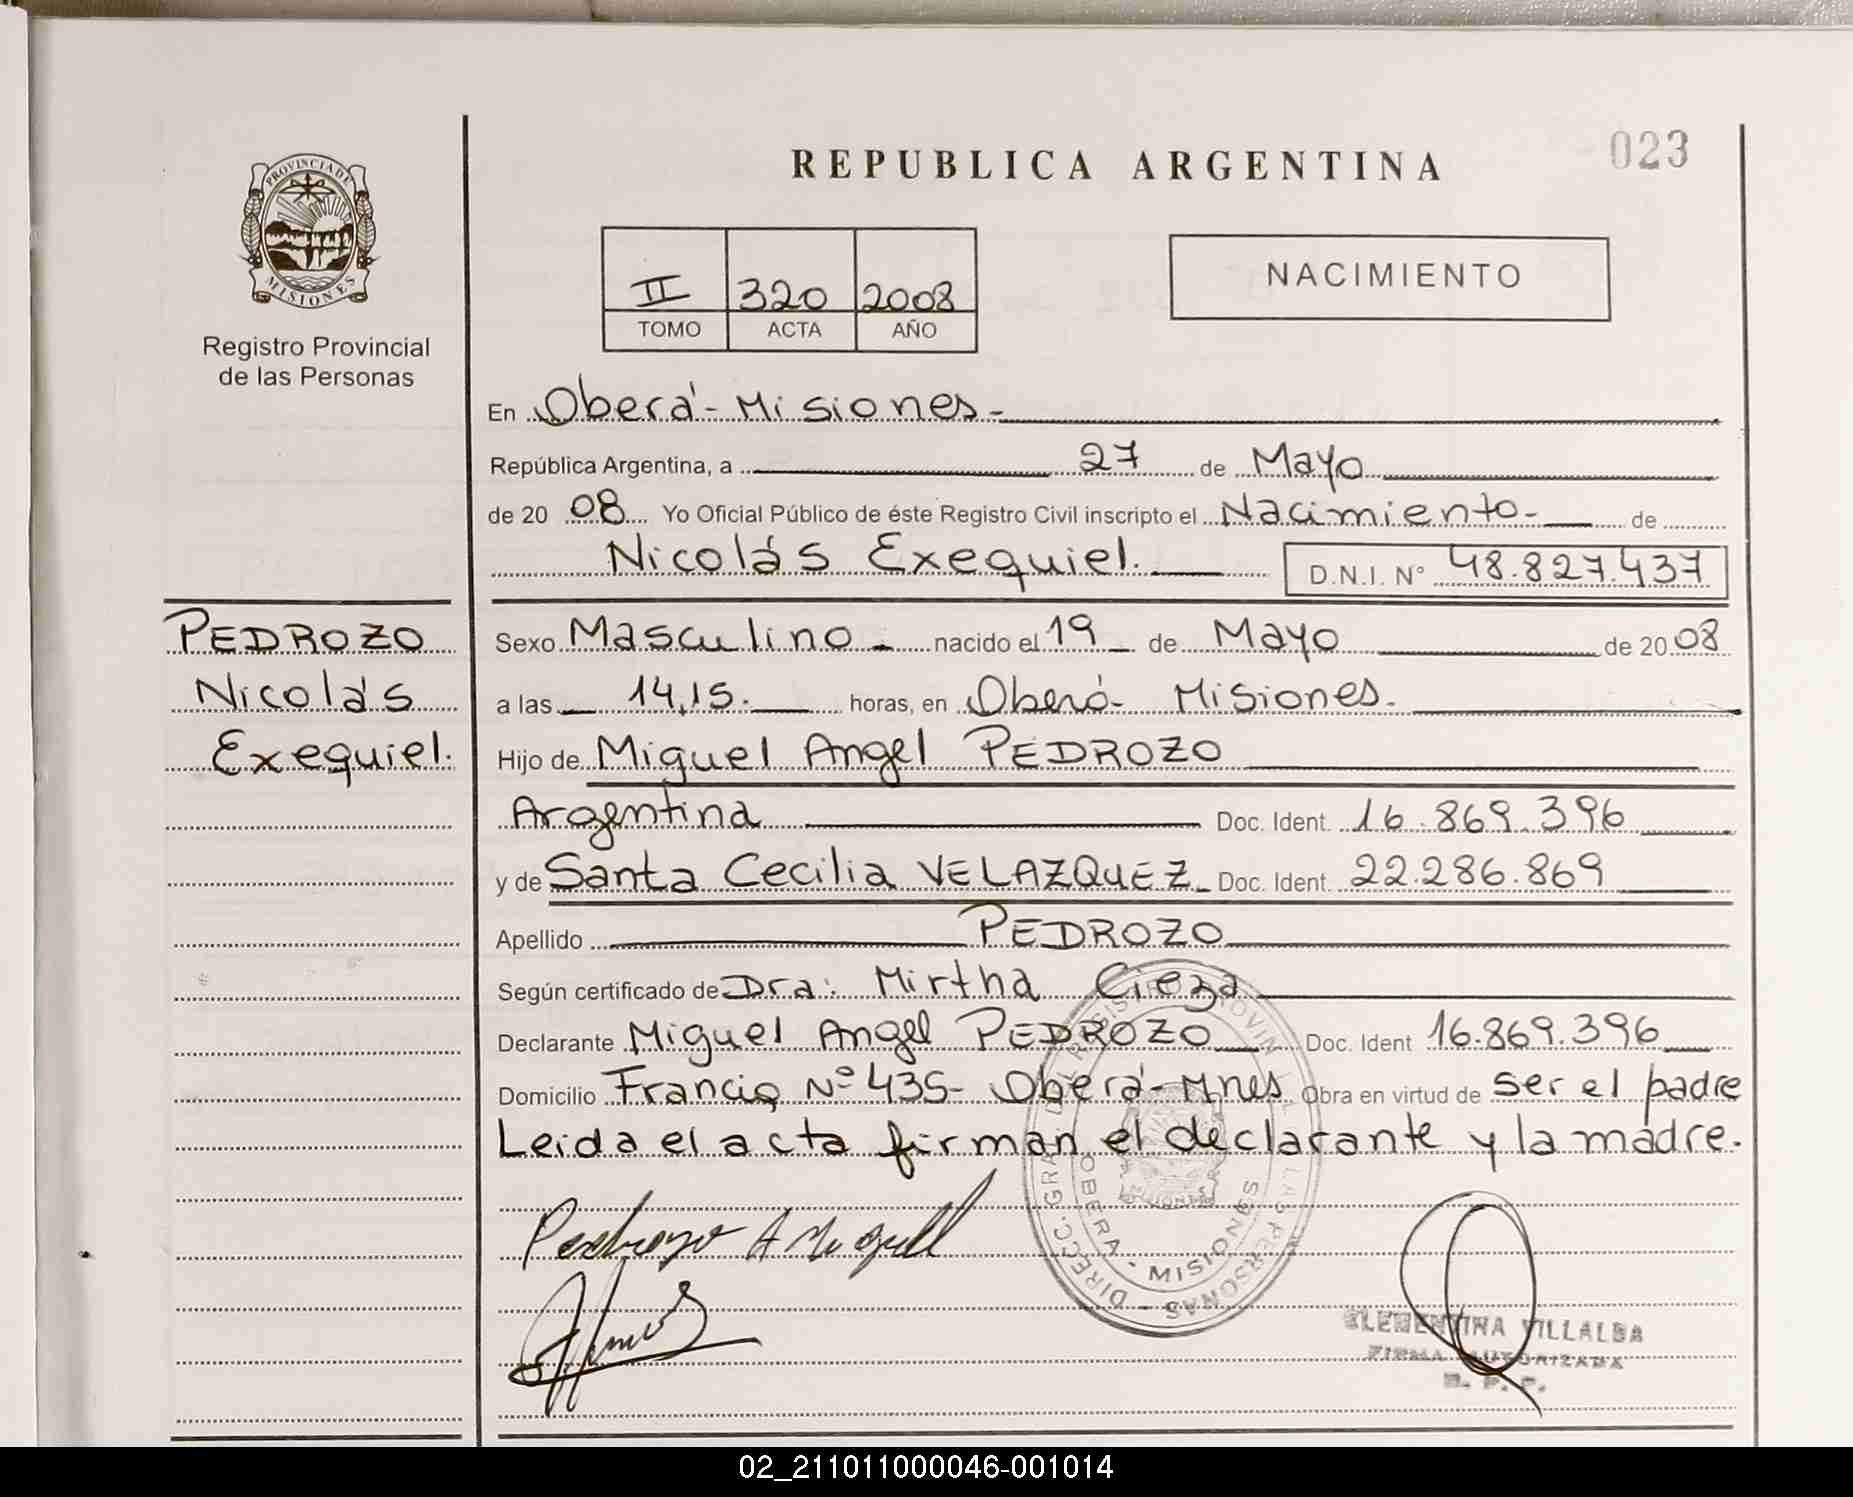 023
REPUBLICA ARGENTINA
PROVINCIA DE
MISIONES
Registro Provincial
de las Personas
II 320 2008
TOMO ACTA AÑO
NACIMIENTO
En Oberá - Misiones -
República Argentina, a 27 de Mayo
de 20 08 Yo Oficial Público de éste Registro Civil inscripto el Nacimiento - de
Nicolás Exequiel. D.N.I. N° 48.827.437
PEDROZO
Nicolás
Exequiel.
Sexo Masculino - nacido el 19 de Mayo de 20 08
a las 14,15. horas, en Oberá - Misiones.
Hijo de Miguel Angel PEDROZO
Argentina Doc. Ident. 16.869.396
y de Santa Cecilia VELAZQUEZ - Doc. Ident. 22.286.869
Apellido PEDROZO
Según certificado de Dra: Mirtha Cieza
Declarante Miguel Angel PEDROZO Doc. Ident 16.869.396
Domicilio Francia Nº 435 - Oberá - Mnes Obra en virtud de ser el padre
Leida el acta firman el declarante y la madre.
OBERA - MISIONES
CLEMENTINA VILLALBA
FIRMA AUTORIZADA
R. P. P.
02_211011000046-001014